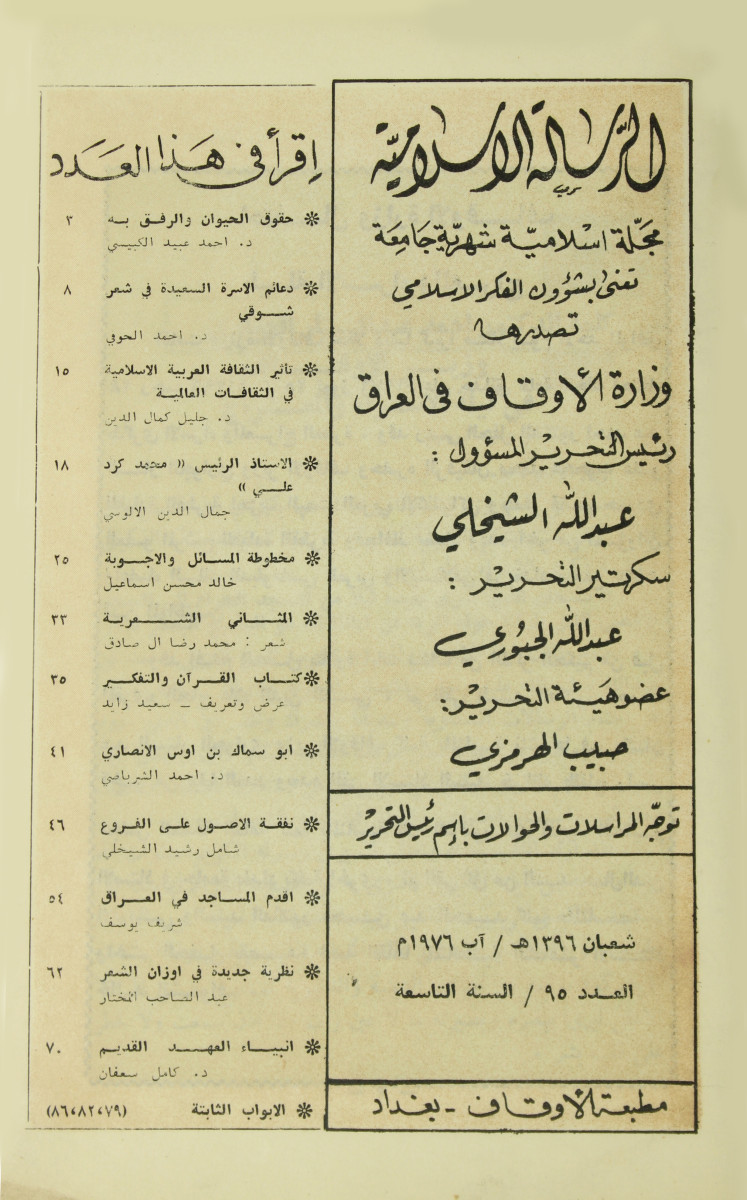 الرسالة الاسلامية
مجلة اسلامية شهرية جامعة
تعنى بشؤون الفكر الاسلامي
تصدرها
وزارة الأوقاف في العراق
رئيس التحرير المسؤول :
عبدالله الشيخلي
سكرتير التحرير :
عبدالله الجبوري
عضو هيئة التحرير :
حبيب الهرمزي
توجّه المراسلات والحوالات باسم رئيس التحرير
شعبان ١٣٩٦هـ / آب ١٩٧٦م
العدد ٩٥ / السنة التاسعة
مطبعة الأوقاف - بغداد
إقرأ في هذا العدد
❊ حقوق الحيوان والرفق به ٣
د. احمد عبيد الكبيسي
❊ دعائم الاسرة السعيدة في شعر ٨
شوقي
د. احمد الحوفي
❊ تأثير الثقافة العربية الاسلامية ١٥
في الثقافات العالمية
د. جليل كمال الدين
❊ الاستاذ الرئيس « محمد كرد ١٨
علي »
جمال الدين الالوسي
❊ مخطوطة المسائل والاجوبة ٢٥
خالد محسن اسماعيل
❊ المثاني الشعرية ٣٣
شعر : محمد رضا ال صادق
❊ كتاب القرآن والتفكير ٣٥
عرض وتعريف ــ سعيد زايد
❊ ابو سماك بن اوس الانصاري ٤١
د. احمد الشرباصي
❊ نفقة الاصول على الفروع ٤٦
شامل رشيد الشيخلي
❊ اقدم المساجد في العراق ٥٤
شريف يوسف
❊ نظرية جديدة في اوزان الشعر ٦٢
عبد الصاحب المختار
❊ انبياء العهد القديم ٧٠
د. كامل سعفان
❊ الابواب الثابتة (٨٦،٨٢،٧٩)